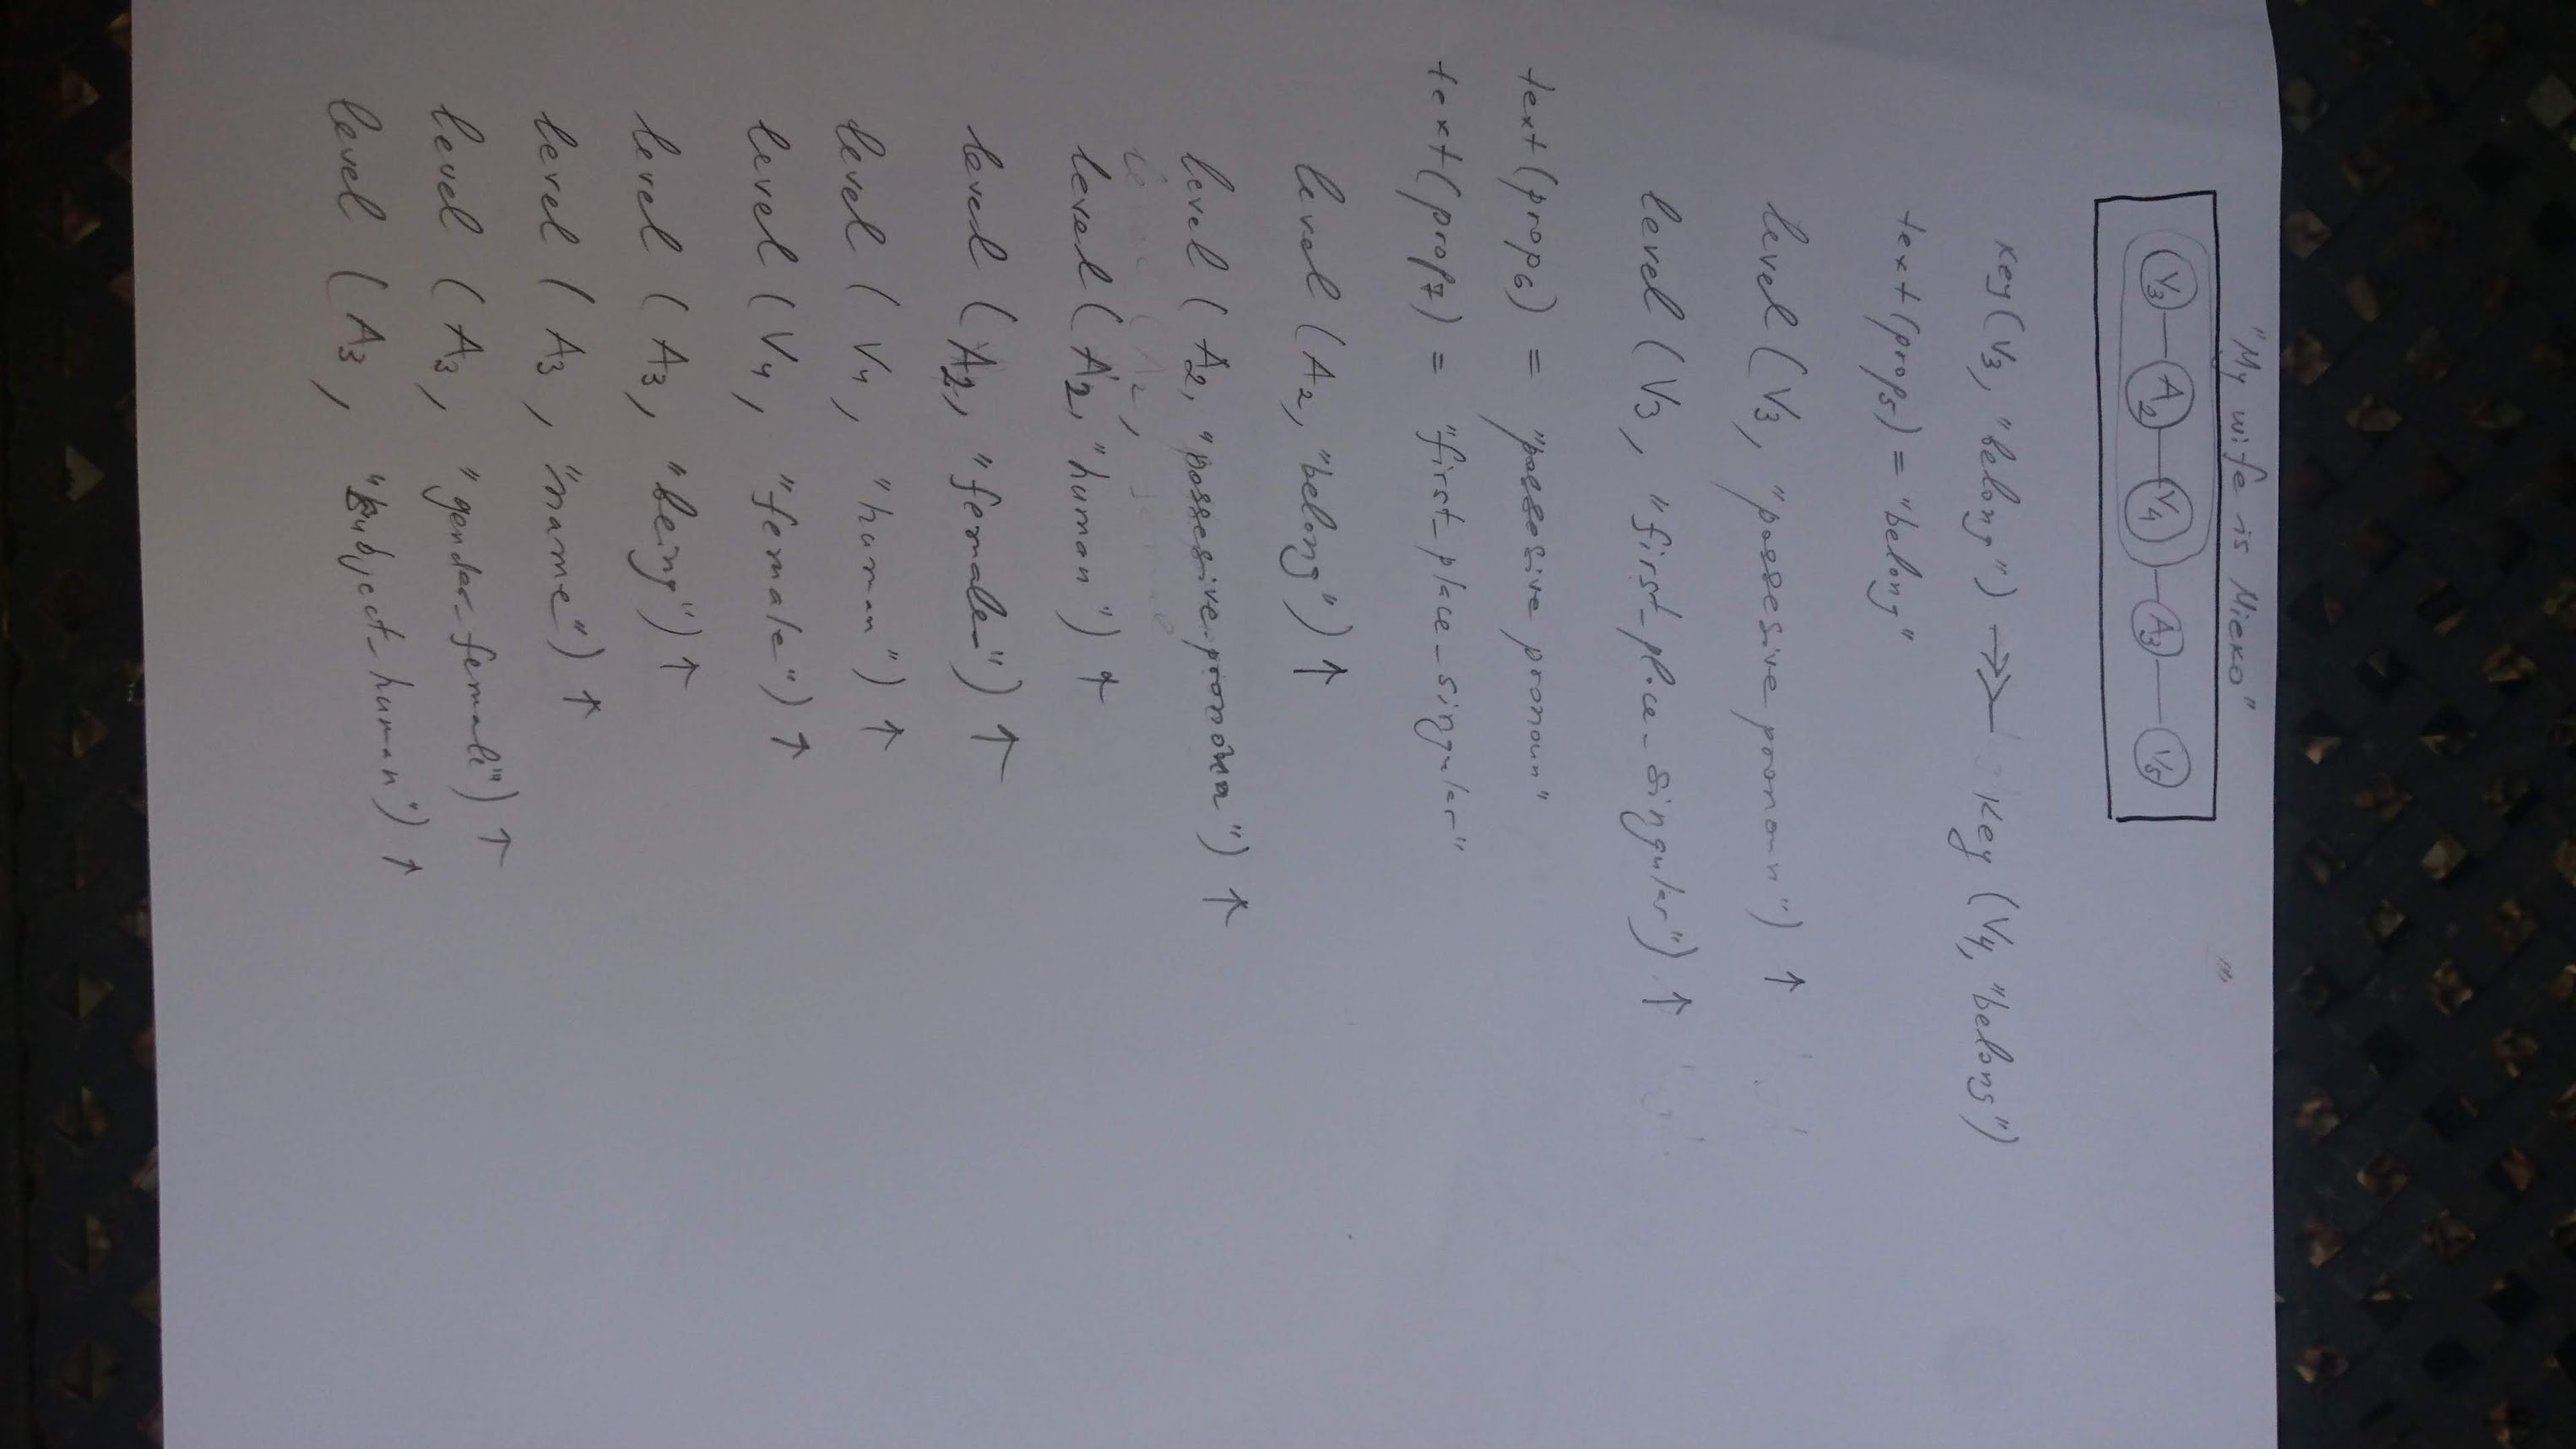 "My wife is Mieko"
V3 — A2 — V4 — A3 — V5
key(V3, "belong") →>> key (V4, "belong")
text(prop5) = "belong"
level (V3, "possesive pronoun") ↑
level (V3, "first_place_singular") ↑
text(prop6) = "possesive pronoun"
text(prop7) = "first_place_singular"
level (A2, "belong") ↑
level (A2, "possesive pronoun") ↑
level (A2, "human") ↑
level (A2, "female") ↑
level (V4, "human") ↑
level (V4, "female") ↑
level (A3, "being") ↑
level (A3, "name") ↑
level (A3, "gender_female") ↑
level (A3, "subject_human") ↑